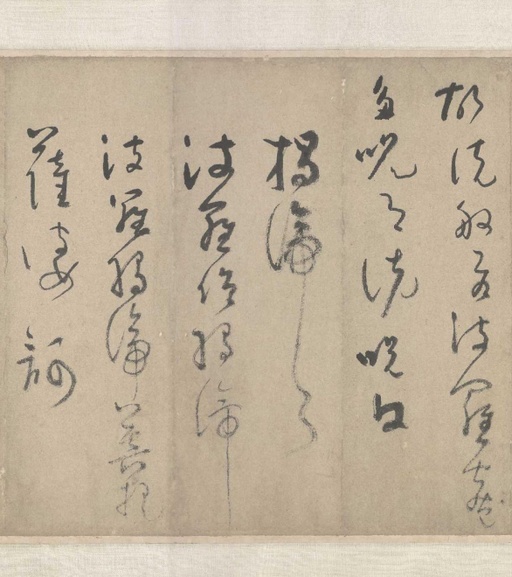 故説般若波羅蜜
多呪即説呪曰
揭諦〻
波羅僧揭諦
波羅揭諦菩提
薩婆訶